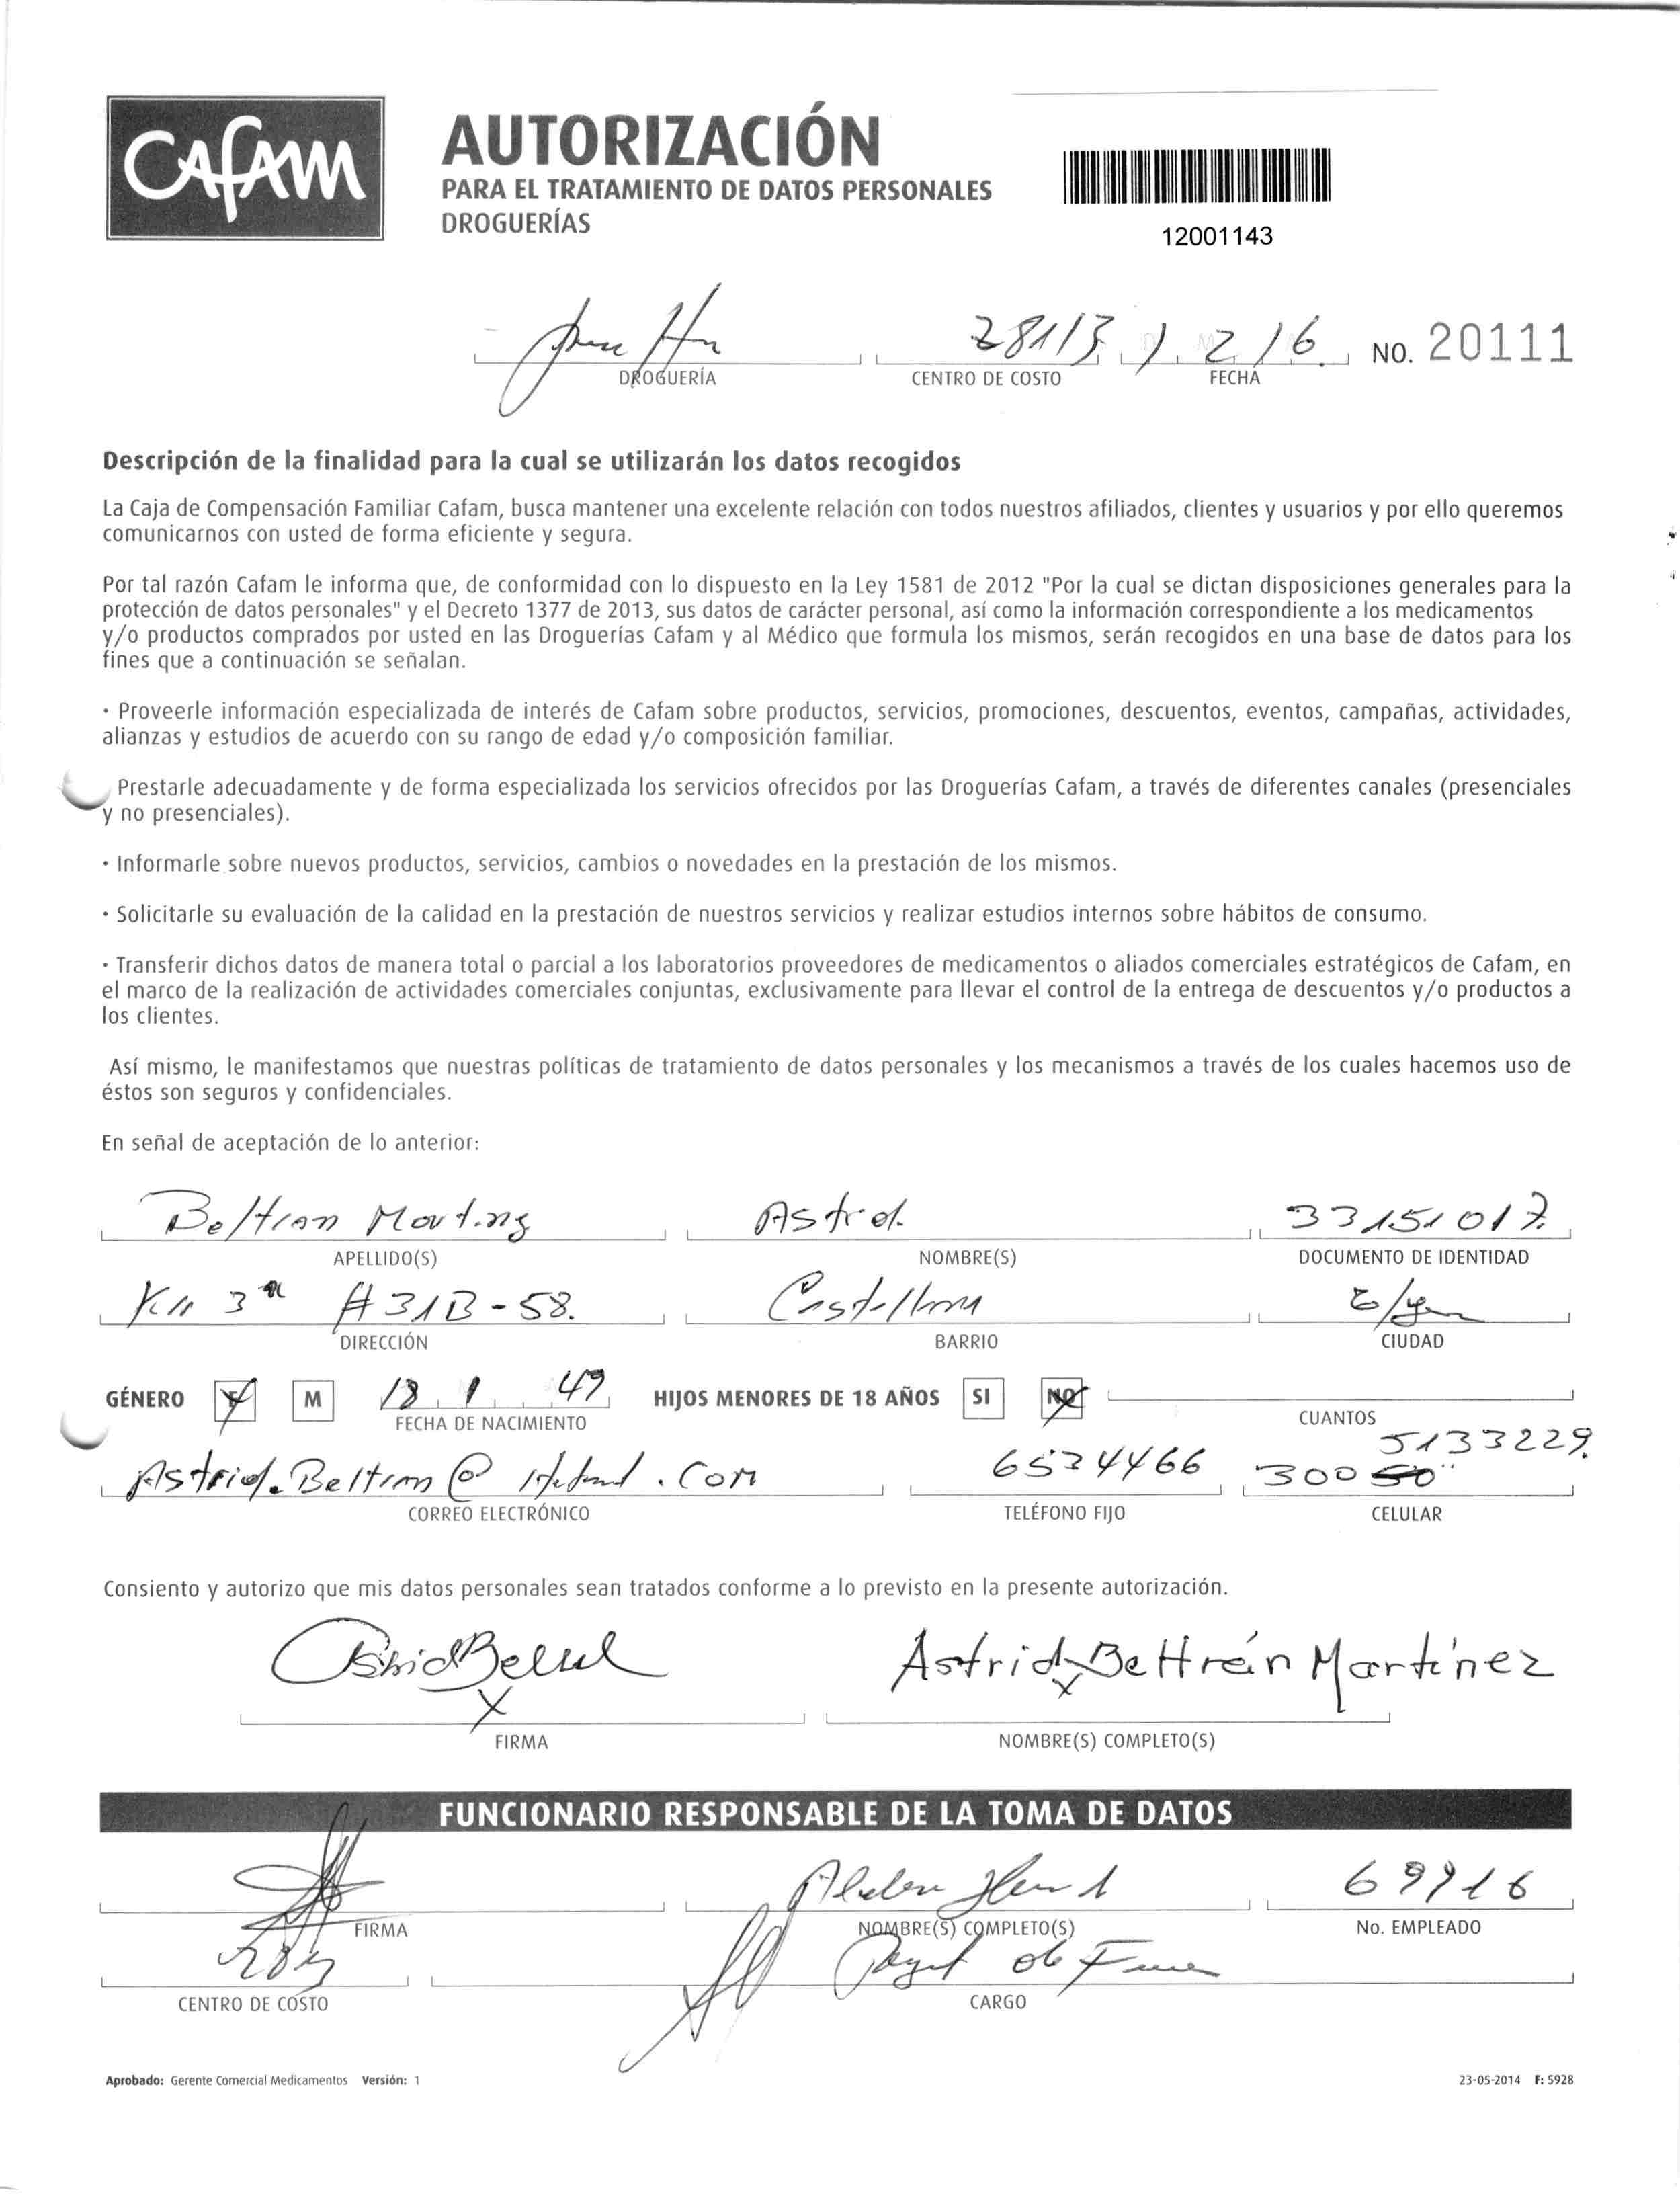 CAFAM
AUTORIZACIÓN
PARA EL TRATAMIENTO DE DATOS PERSONALES
DROGUERÍAS
12001143
28113 1 2 16 NO. 20111
DROGUERÍA CENTRO DE COSTO FECHA
Descripción de la finalidad para la cual se utilizarán los datos recogidos
La Caja de Compensación Familiar Cafam, busca mantener una excelente relación con todos nuestros afiliados, clientes y usuarios y por ello queremos
comunicarnos con usted de forma eficiente y segura.
Por tal razón Cafam le informa que, de conformidad con lo dispuesto en la Ley 1581 de 2012 "Por la cual se dictan disposiciones generales para la
protección de datos personales" y el Decreto 1377 de 2013, sus datos de carácter personal, así como la información correspondiente a los medicamentos
y/o productos comprados por usted en las Droguerías Cafam y al Médico que formula los mismos, serán recogidos en una base de datos para los
fines que a continuación se señalan.
· Proveerle información especializada de interés de Cafam sobre productos, servicios, promociones, descuentos, eventos, campañas, actividades,
alianzas y estudios de acuerdo con su rango de edad y/o composición familiar.
Prestarle adecuadamente y de forma especializada los servicios ofrecidos por las Droguerías Cafam, a través de diferentes canales (presenciales
y no presenciales).
· Informarle sobre nuevos productos, servicios, cambios o novedades en la prestación de los mismos.
· Solicitarle su evaluación de la calidad en la prestación de nuestros servicios y realizar estudios internos sobre hábitos de consumo.
· Transferir dichos datos de manera total o parcial a los laboratorios proveedores de medicamentos o aliados comerciales estratégicos de Cafam, en
el marco de la realización de actividades comerciales conjuntas, exclusivamente para llevar el control de la entrega de descuentos y/o productos a
los clientes.
Así mismo, le manifestamos que nuestras políticas de tratamiento de datos personales y los mecanismos a través de los cuales hacemos uso de
éstos son seguros y confidenciales.
En señal de aceptación de lo anterior:
Beltran Astrid 33151017
APELLIDO(S) NOMBRE(S) DOCUMENTO DE IDENTIDAD
3 # 31B - 58.
DIRECCIÓN BARRIO CIUDAD
GÉNERO F M 18 1 49 HIJOS MENORES DE 18 AÑOS SI NO
FECHA DE NACIMIENTO CUANTOS
5133229
Astrid.Beltran @ . Com 6534466 300
CORREO ELECTRÓNICO TELÉFONO FIJO CELULAR
Consiento y autorizo que mis datos personales sean tratados conforme a lo previsto en la presente autorización.
Astrid Beltrán Martínez
FIRMA NOMBRE(S) COMPLETO(S)
FUNCIONARIO RESPONSABLE DE LA TOMA DE DATOS
FIRMA NOMBRE(S) COMPLETO(S) No. EMPLEADO
CENTRO DE COSTO CARGO
Aprobado: Gerente Comercial Medicamentos Versión: 1 23-05-2014 F: 5928